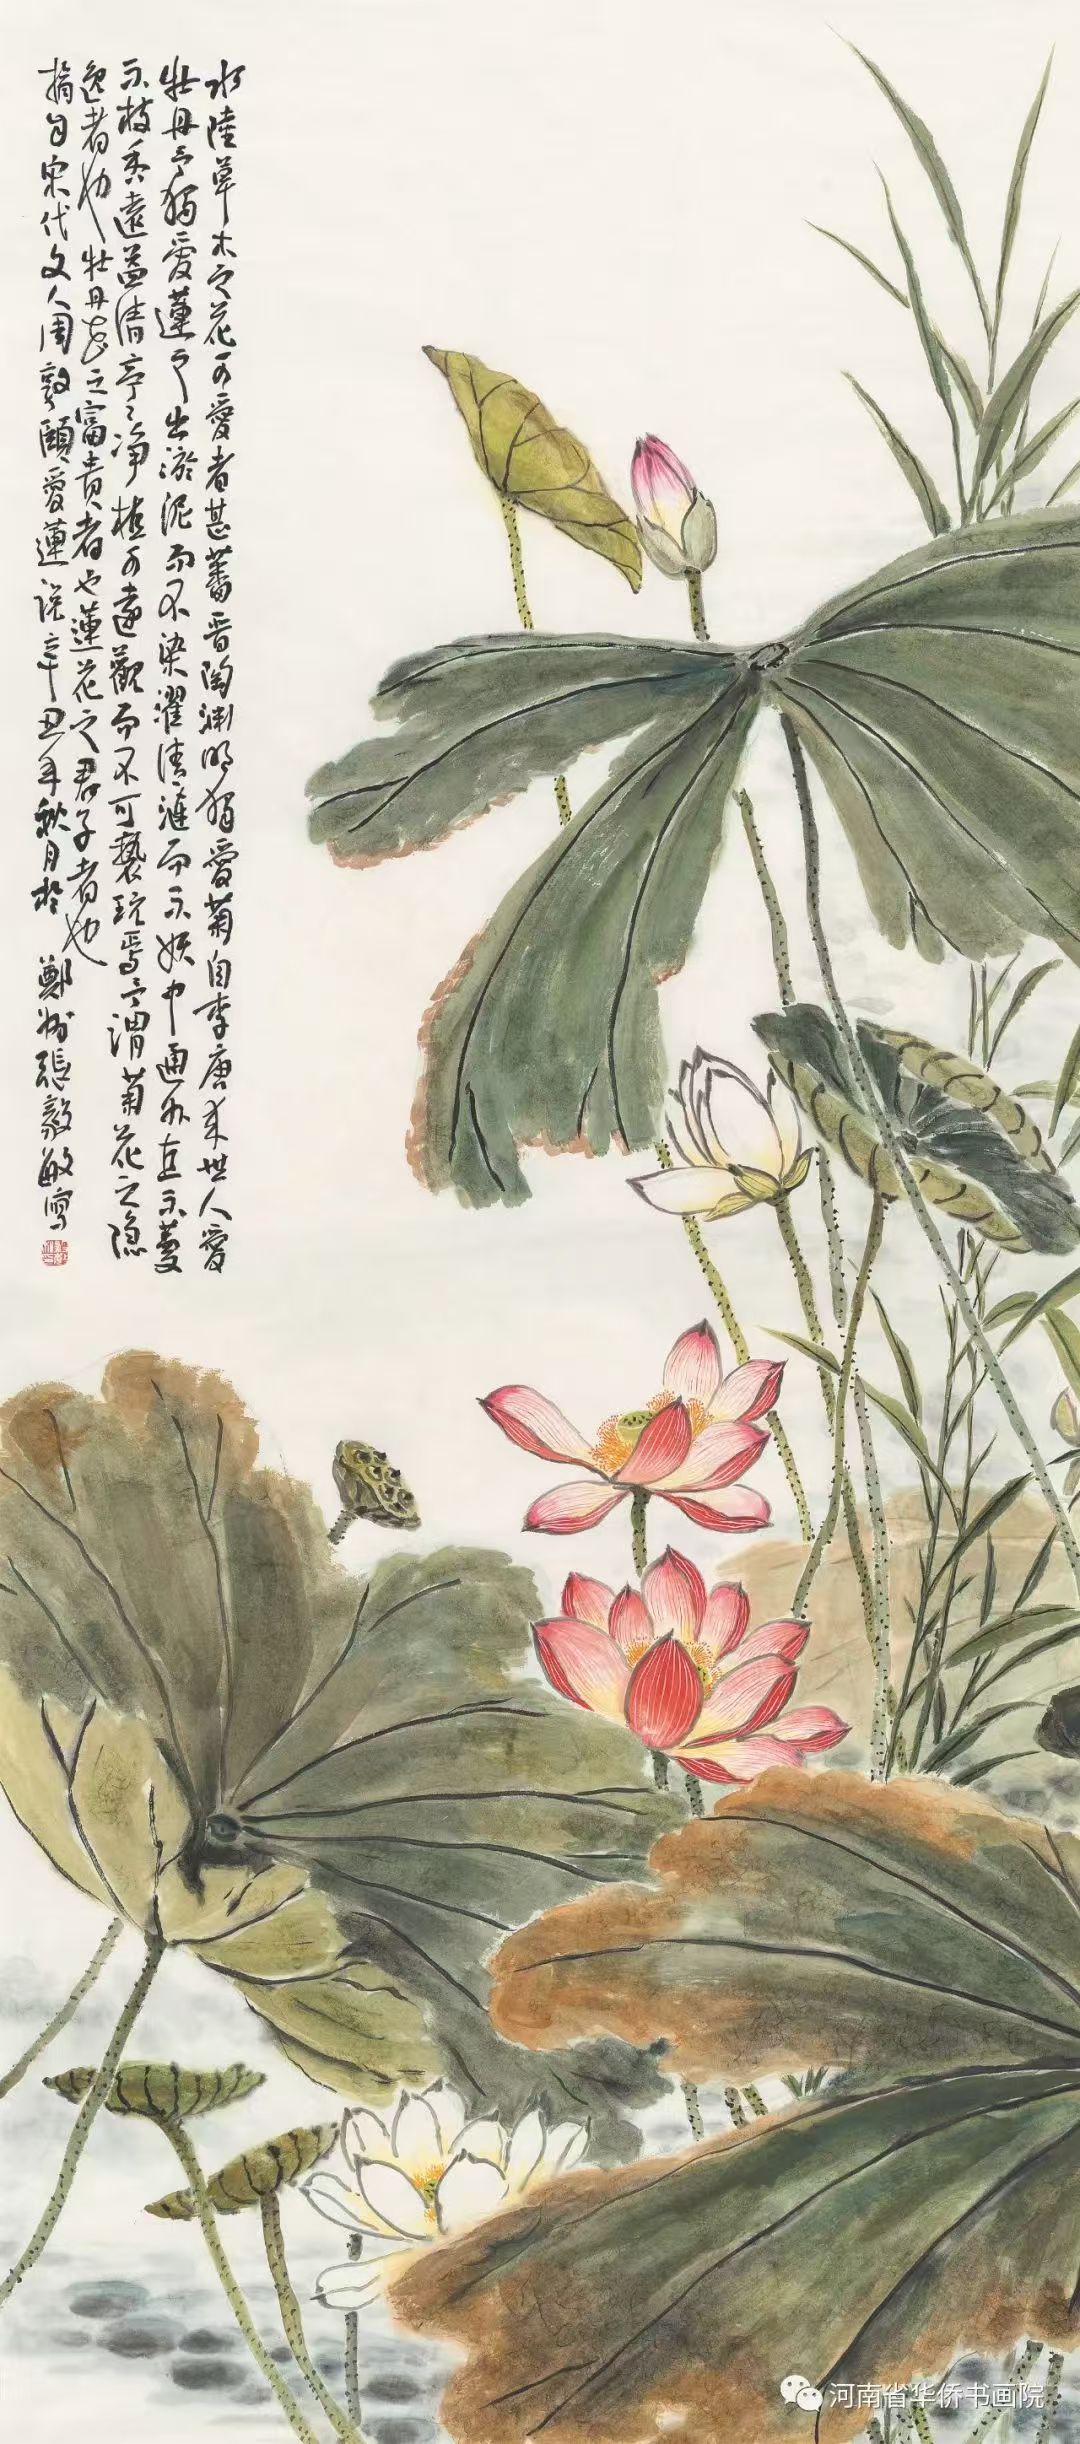 水陸草木之花可愛者甚蕃晋陶渊明獨愛菊自李唐来世人愛
牡丹予獨愛蓮之出淤泥而不染濯清漣而不妖中通外直不蔓
不枝香遠益清亭亭净植可遠觀而不可褻玩焉予謂菊花之隐
逸者也牡丹花之富貴者也蓮花之君子者也
摘自宋代文人周敦頤愛蓮说辛丑年秋月於鄭州張毅敏寫
河南省华侨书画院